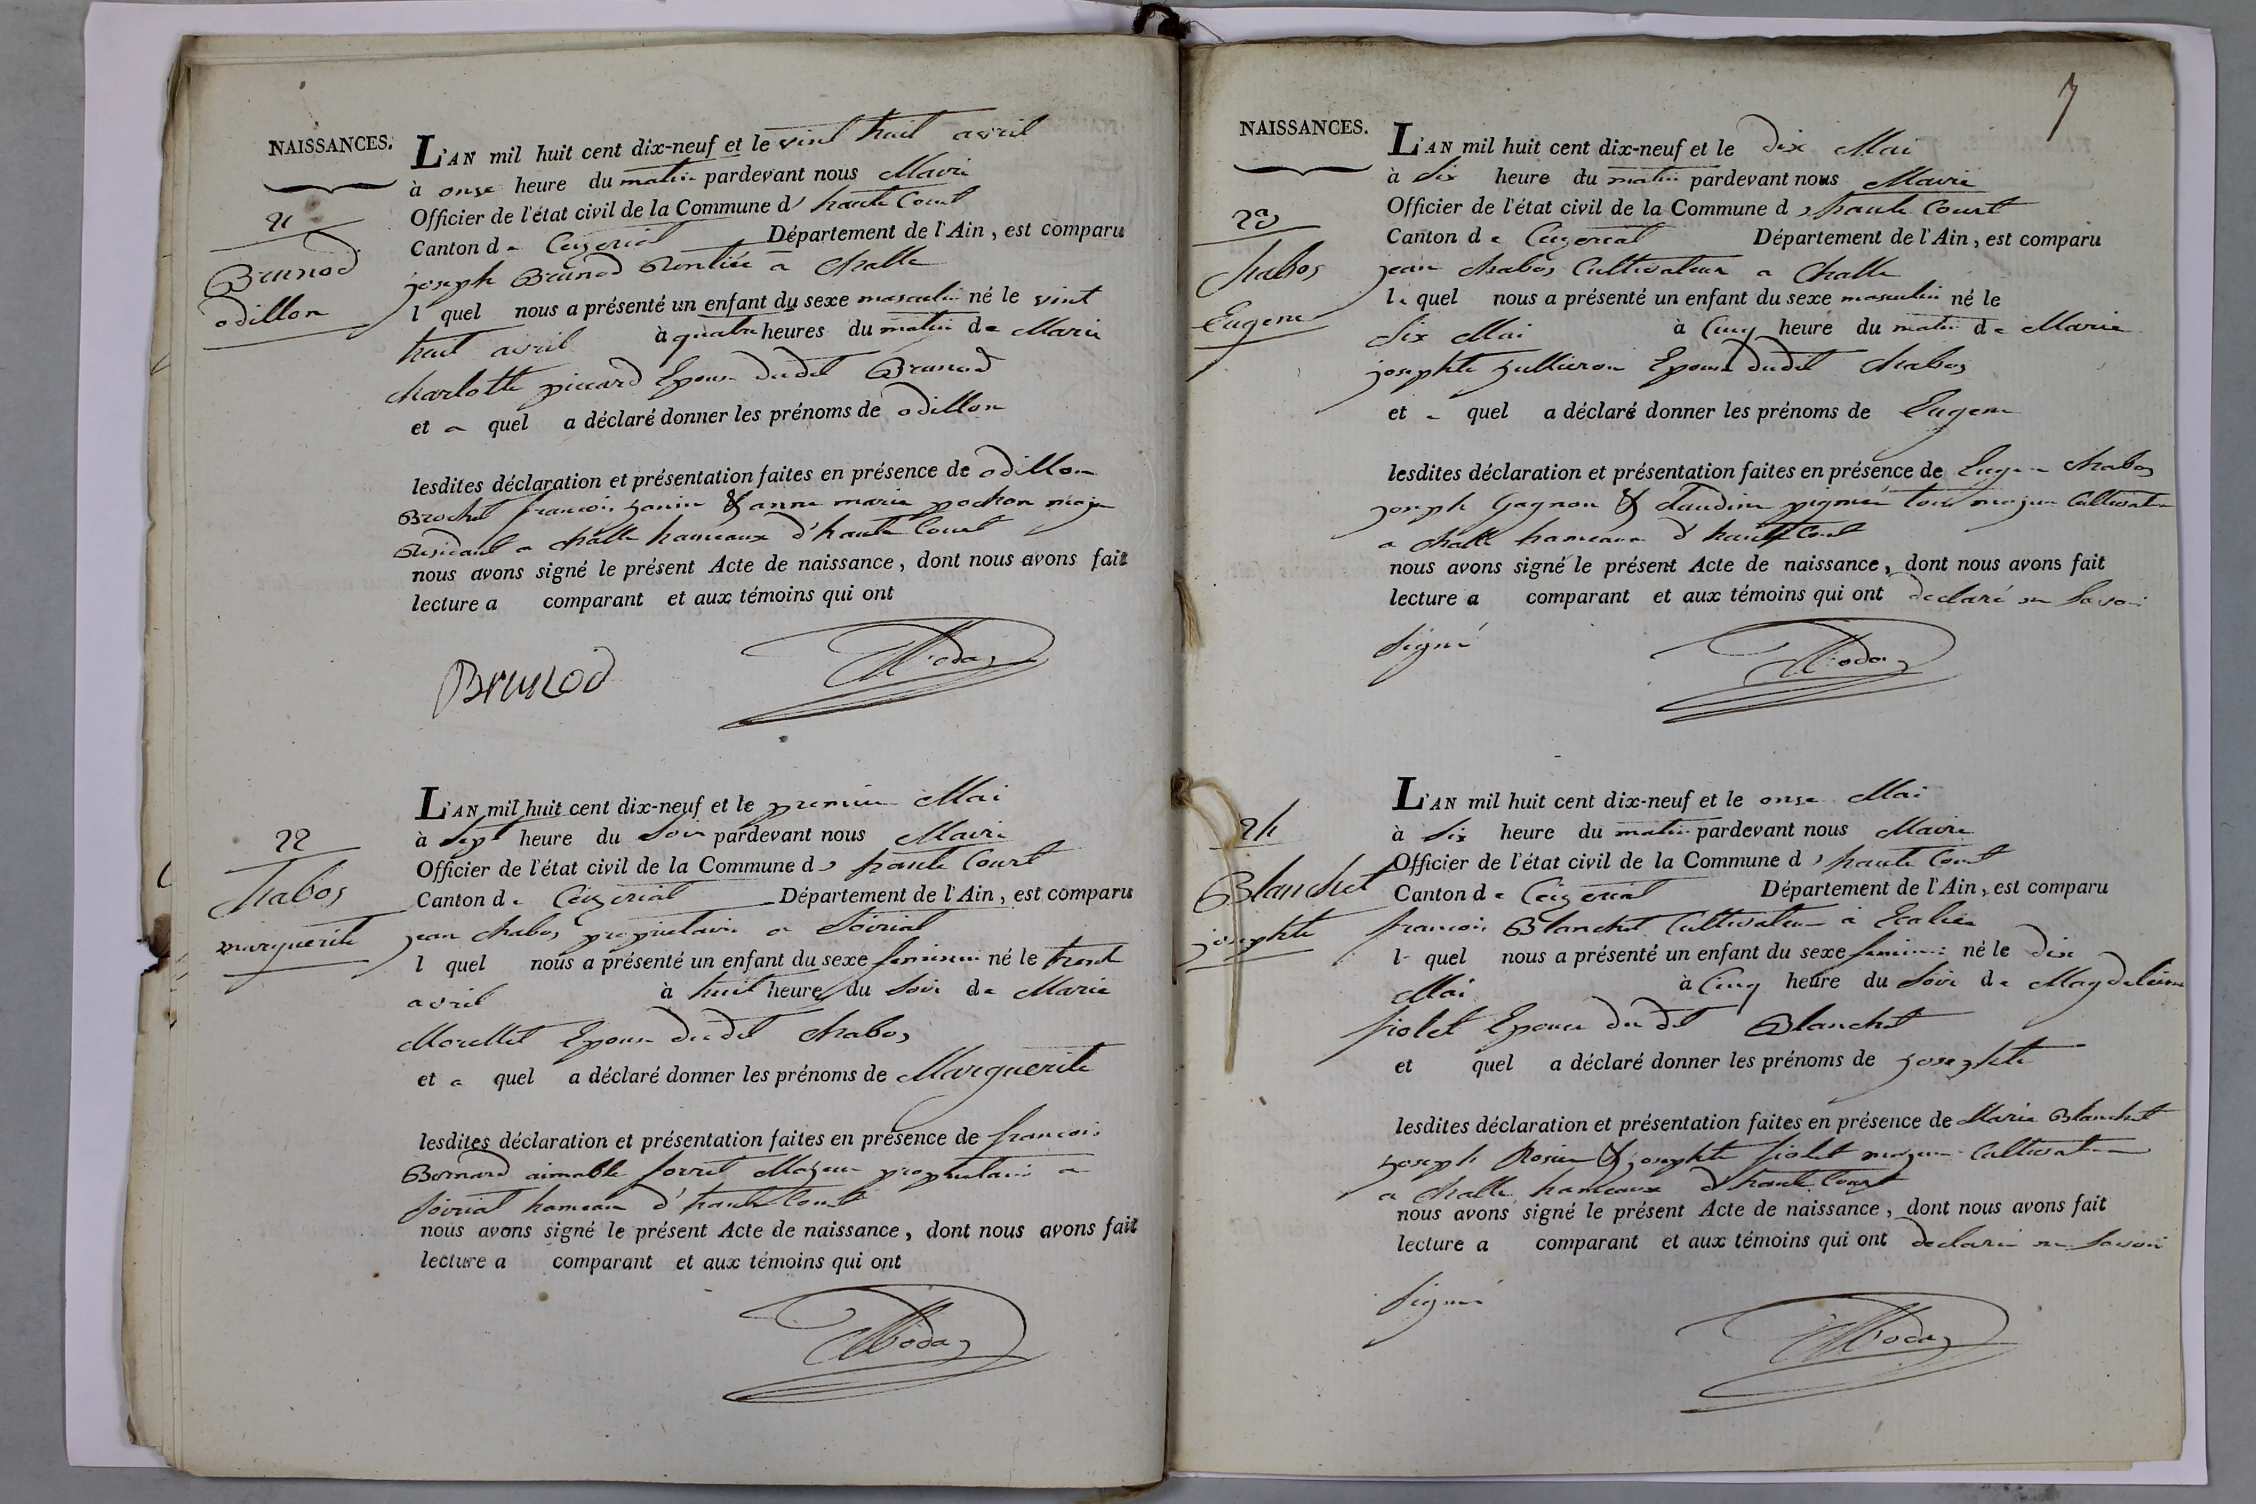 NAISSANCES.
21
Brunod
odillon
L'AN mil huit cent dix-neuf et le vint huit avril
à onze heure du matin pardevant nous Maire
Officier de l'état civil de la Commune d' haute Court
Canton de Ceyzeriat Département de l'Ain, est comparu
joseph Brunod Rentiée a Challe
l quel nous a présenté un enfant du sexe masculin né le vint
huit avril à quatre heures du matin de Marie
charlotte piccard Epouse dudit Brunod
et a quel a déclaré donner les prénoms de odillon
lesdites déclaration et présentation faites en présence de odillon
Brochet francois janin & anne marie pochon majeu
Residant a challe hameaux d'haute Court
nous avons signé le présent Acte de naissance, dont nous avons fait
lecture a comparant et aux témoins qui ont
Brunod
22
Chabos
marguerite
L'AN mil huit cent dix-neuf et le premier Mai
à Sept heure du Soir pardevant nous Maire
Officier de l'état civil de la Commune d' haute Court
Canton de Ceyzeriat Département de l'Ain, est comparu
jean chabos propriétaire a Soiriat
l quel nous a présenté un enfant du sexe feminin né le trent
avril à huit heure du Soir de Marie
Morellet Epouse dudit chabos
et a quel a déclaré donner les prénoms de Marguerite
lesdites déclaration et présentation faites en présence de francois
Bernard aimable forret Majeur propriétaire a
Soiriat hameau d'haute Court
nous avons signé le présent Acte de naissance, dont nous avons fait
lecture a comparant et aux témoins qui ont
7
NAISSANCES.
23
Chabos
Eugene
L'AN mil huit cent dix-neuf et le dix Mai
à Six heure du matin pardevant nous Maire
Officier de l'état civil de la Commune d' haute Court
Canton de Ceyzeriat Département de l'Ain, est comparu
jean chabos Cultivateur a Challe
le quel nous a présenté un enfant du sexe masculin né le
dix Mai à Cinq heure du matin de Marie
josephte jullieron Epouse dudit chabos
et a quel a déclaré donner les prénoms de Eugene
lesdites déclaration et présentation faites en présence de Eugene chabos
joseph Gagnon & Claudine tous majeur Cultivateur
a challe hameaux d'haute Court
nous avons signé le présent Acte de naissance, dont nous avons fait
lecture a comparant et aux témoins qui ont declaré ne Savoir
Signé
24
Blanchet
josephte
L'AN mil huit cent dix-neuf et le onze Mai
à Six heure du matin pardevant nous Maire
Officier de l'état civil de la Commune d' haute Court
Canton de Ceyzeriat Département de l'Ain, est comparu
francois Blanchet Cultivateur a
le quel nous a présenté un enfant du sexe feminin né le dix
Mai à Cinq heure du Soir de Magdeleine
fiolet Epouse dudit Blanchet
et quel a déclaré donner les prénoms de josephte
lesdites déclaration et présentation faites en présence de Marie Blanchet
joseph Rosier & josephte fiolet majeur Cultivateur
a challe hameaux d'haute Court
nous avons signé le présent Acte de naissance, dont nous avons fait
lecture a comparant et aux témoins qui ont declaré ne Savoir
Signé